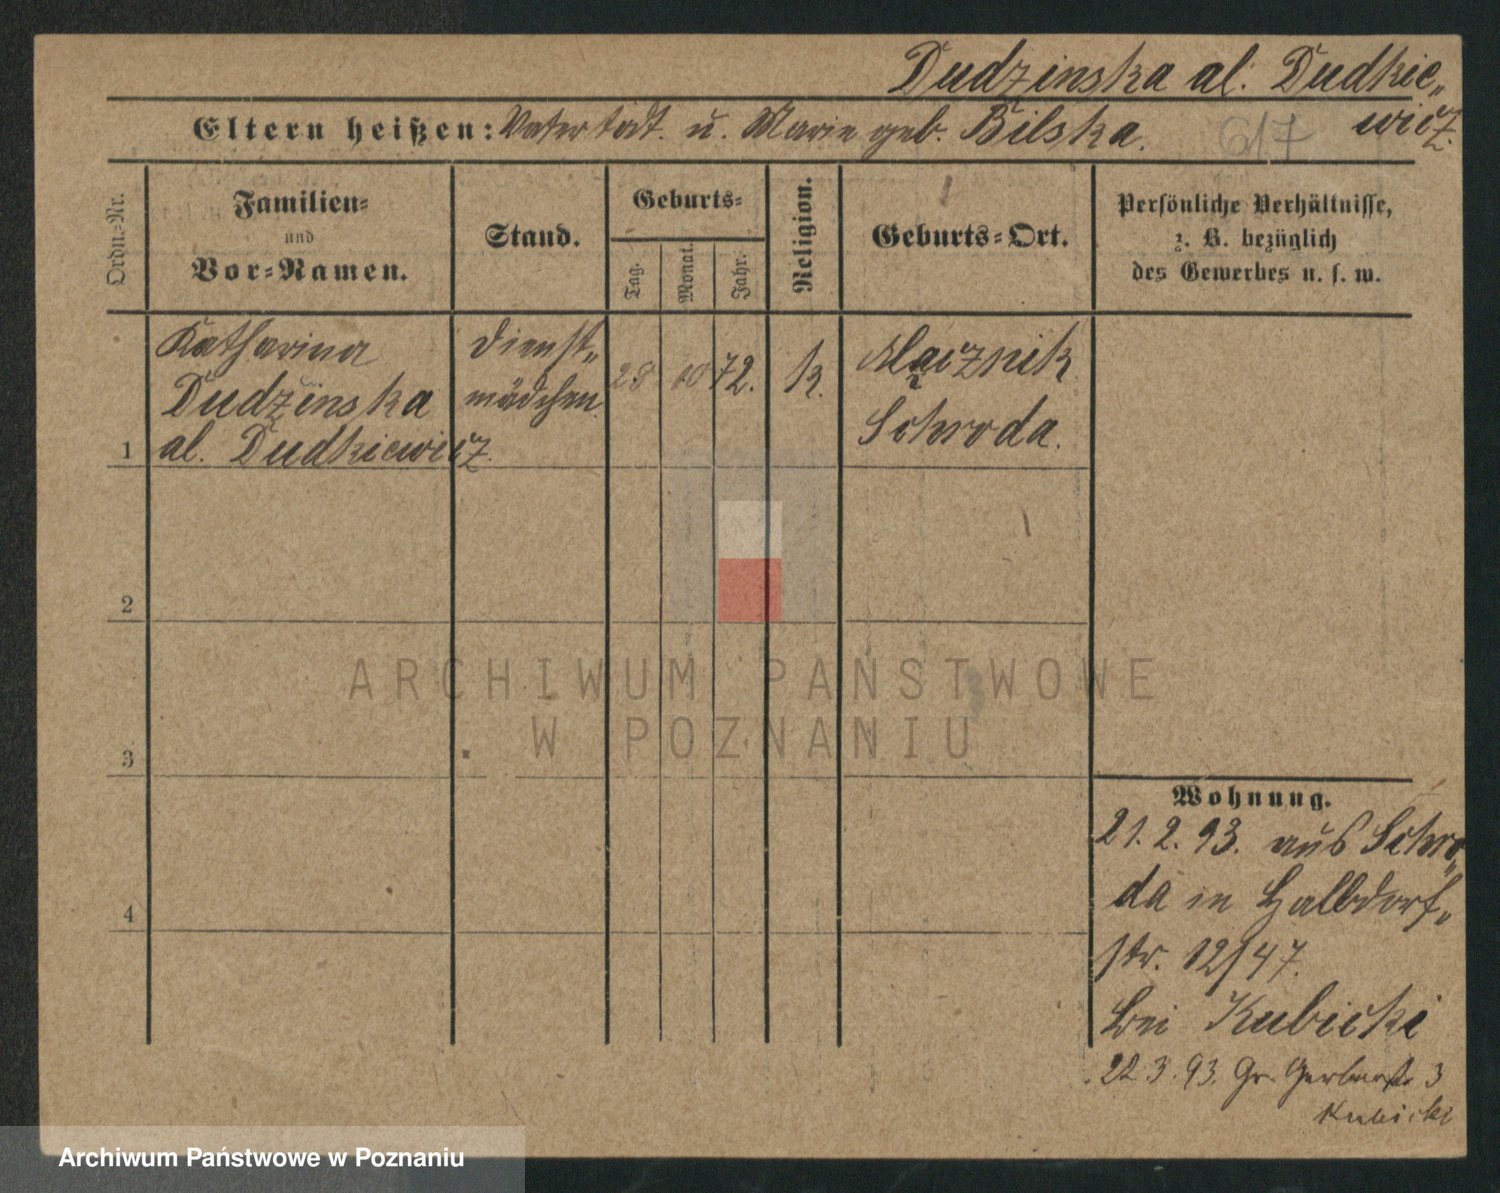 Dudzinska al. Dudkie„
wicz.
Eltern heißen: Vater todt. u. Marie geb. Bilska.
617
Ordn.-Nr.
Familien-
und
Vor-Namen.
Stand.
Geburts-
Tag.
Monat.
Jahr.
Religion.
Geburts-Ort.
Persönliche Verhältnisse,
z. B. bezüglich
des Gewerbes u. s. w.
1
Katharina
Dudzinska
al. Dudkiewicz.
Dienst„
mädchen.
28
10
72.
k.
Mącznik
Schroda.
2
3
4
ARCHIWUM PAŃSTWOWE
W POZNANIU
Wohnung.
21.2.93. aus Schro„
da in Halbdorf„
str. 12/47.
bei Kubicki
22.3.93. Gr. Gerberstr. 3
Kubicki
Archiwum Państwowe w Poznaniu